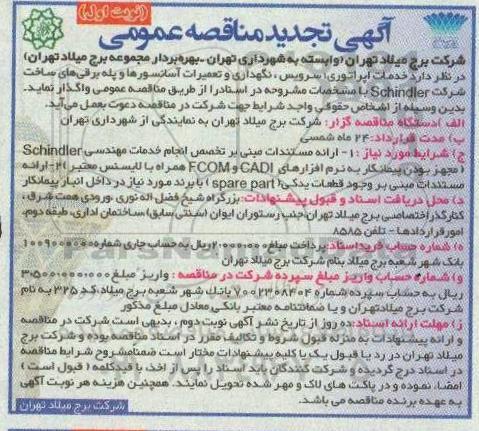 (نوبت اول)
آگهی تجدید مناقصه عمومی
شرکت برج میلاد تهران (وابسته به شهرداری تهران -بهره بردار مجموعه برج میلاد تهران)
در نظر دارد خدمات اپراتوری، سرویس ، نگهداری و تعمیرات آسانسورها و پله برقی‌های ساخت
شرکت Schindler با مشخصات مشروحه در اسناد را از طریق مناقصه عمومی واگذار نماید.
بدین وسیله از اشخاص حقوقی واجد شرایط جهت شرکت در مناقصه دعوت بعمل می‌آید.
الف) دستگاه مناقصه گزار: شرکت برج میلاد تهران به نمایندگی از شهرداری تهران
ب) مدت قرارداد: ۲۴ ماه شمسی
ج) شرایط مورد نیاز : ۱- ارائه مستندات مبنی بر تخصص انجام خدمات مهندسی Schindler
( مجهز بودن پیمانکار به نرم افزارهای CADI و FCOM همراه با لایسنس معتبر ) ۲-ارائه
مستندات مبنی بر وجود قطعات یدکی( spare part ) با برند مورد نیاز در داخل انبار پیمانکار
د) محل دریافت اسناد و قبول پیشنهادات: بزرگراه شیخ فضل اله نوری ،ورودی همت شرق ،
کنارگذر اختصاصی برج میلاد تهران، جنب رستوران ایوان (سنتی سابق) ساختمان اداری، طبقه دوم،
امور قراردادها - تلفن ۸۵۸۵
ه) شماره حساب خرید اسناد: پرداخت مبلغ ۲.۰۰۰.۰۰۰ ریال به حساب جاری شماره
بانک شهر شعبه برج میلاد بنام شرکت برج میلاد تهران
و) شماره حساب واریز مبلغ سپرده شرکت در مناقصه : واریز مبلغ ۳.۵۰۰.۰۰۰.۰۰۰
ریال به حساب سپرده شماره ۷۰۰۲۳۰۸۴۰۴ بانک شهر شعبه برج میلاد، کد ۳۲۵ به نام
شرکت برج میلاد تهران و یا ضمانتنامه معتبر بانکی معادل مبلغ مذکور
ز) مهلت ارائه اسناد: ده روز از تاریخ نشر آگهی نوبت دوم ، بدیهی است شرکت در مناقصه
و ارائه پیشنهادات به منزله قبول شروط و تکالیف مقرر در اسناد مناقصه بوده و شرکت برج
میلاد تهران در رد یا قبول یک یا کلیه پیشنهادات مختار است ضمنا مشروح شرایط مناقصه
در اسناد درج گردیده و شرکت کنندگان باید اسناد را پس از اخذ، با قید کلمه ( قبول است )
امضا، نموده و در پاکت های لاک و مهر شده تحویل نمایند. همچنین هزینه هر نوبت آگهی
به عهده برنده مناقصه می باشد.
شرکت برج میلاد تهران